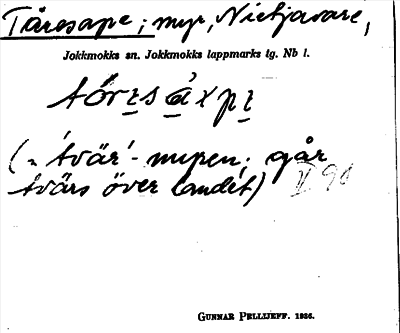 Tåresape; myr, Nietjavare,
Jokkmokks sn. Jokkmokks lappmarks tg. Nb l.
tǒrɛsáxpɛ
(= 'tvär'-myren; går
tvärs över landet) V 90
GUNNAR PELLIJEFF. 1936.